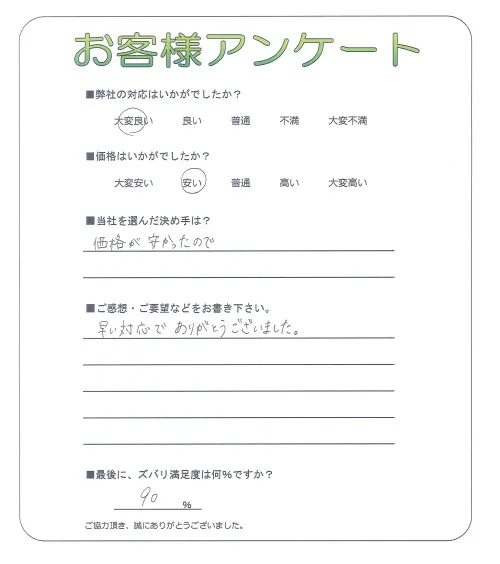 お客様アンケート
■弊社の対応はいかがでしたか？
大変良い 良い 普通 不満 大変不満
■価格はいかがでしたか？
大変安い 安い 普通 高い 大変高い
■当社を選んだ決め手は？
価格が安かったので
■ご感想・ご要望などをお書き下さい。
早い対応でありがとうございました。
■最後に、ズバリ満足度は何%ですか？
90 %
ご協力頂き、誠にありがとうございました。